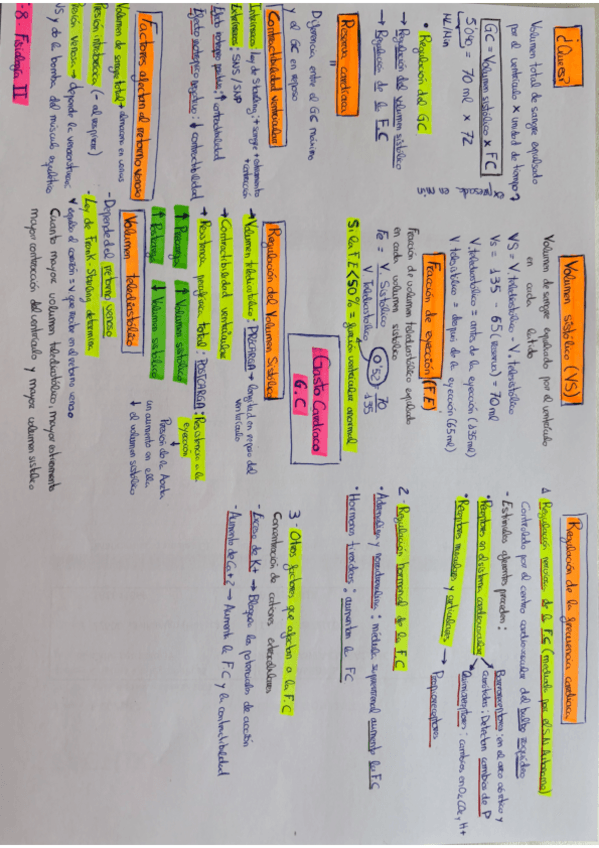 ¿Que es?
Volumen total de sangre expulsado
por el ventrículo x unidad de tiempo
GC = Volumen sistólico x FC
5040 = 70 ml x 72
ml/min
• Regulación del GC
→ Regulación del volumen sistólico
→ Regulación de la FC
Reserva cardiaca
Diferencia entre el GC máximo
y el GC en reposo
Contractibilidad ventricular
Intrínsecos: Ley de Starling: + sangre + estiramiento + contracción
Extrínsecos: SNS / SNP
Efecto isotropo positivo: ↑ contractibilidad
Efecto isotropo negativo: ↓ contractibilidad
Factores afectan al retorno venoso
Volumen de sangre total → almacena en venas
Presión intratorácica (- al respirar)
Presión venosa → depende la vasoconstricc
VS y de la bomba del músculo esquelético
-8 Fisiología II
Volumen sistólico (VS)
Volumen de sangre expulsado por el ventrículo
en cada latido
VS = V. telediastólico - V. telesistólico
VS = 135 - 65 (reserva) = 70 ml
V telediastólico = antes de la eyección (135 ml)
V telesistólico = después de la eyección (65 ml)
Fracción de eyección (F.E)
Fracción de volumen telediastólico expulsado
en cada volumen sistólico
Fe = V. Sistólico / V Telediastólico = 70 / 135
0'52
Si la F.E < 50% = función ventricular anormal
Gasto Cardíaco
G.C
Regulación del Volumen Sistólico
→ Volumen telediastólico: PRECARGA → longitud en reposo del
ventrículo
→ Contractibilidad ventricular
→ Resistencia periférica total: POSTCARGA: Resistencia a la
eyección
↓
Presión de la Aorta
un aumento en ella
↓ el volumen sistólico
↑ Precarga ↑ Volumen sistólico
↑ Postcarga ↓ Volumen sistólico
Volumen telediastólico
- Depende del retorno venoso
- Ley de Frank Starling determina
V expulsa el corazón = V que recibe en el retorno venoso
Cuanto mayor volumen telediastólico, mayor estiramiento
mayor contracción del ventrículo y mayor volumen sistólico
Regulación de la frecuencia cardiaca
1 Regulación nerviosa de la FC (mediada por el S.N Autónomo)
Controlado por el centro cardiovascular del bulbo raquídeo
- Estímulos aferentes proceden:
• Receptores en el sistema cardiovascular
Barorreceptores: en el arco aórtico y
carótidas: Detectan cambios de P
Quimiorreceptores: cambios en O2, CO2, H+
• Receptores musculares y articulares → Propioreceptores
2 - Regulación hormonal de la FC
• Adrenalina y noradrenalina: médula suprarrenal aumenta la FC
• Hormonas tiroideas: aumentan la FC
3 - Otros factores que afectan a la FC
Concentración de cationes extracelulares
- Exceso de K+ → Bloquea los potenciales de acción
- Aumento de Ca+2 → Aumenta la FC y la contractibilidad